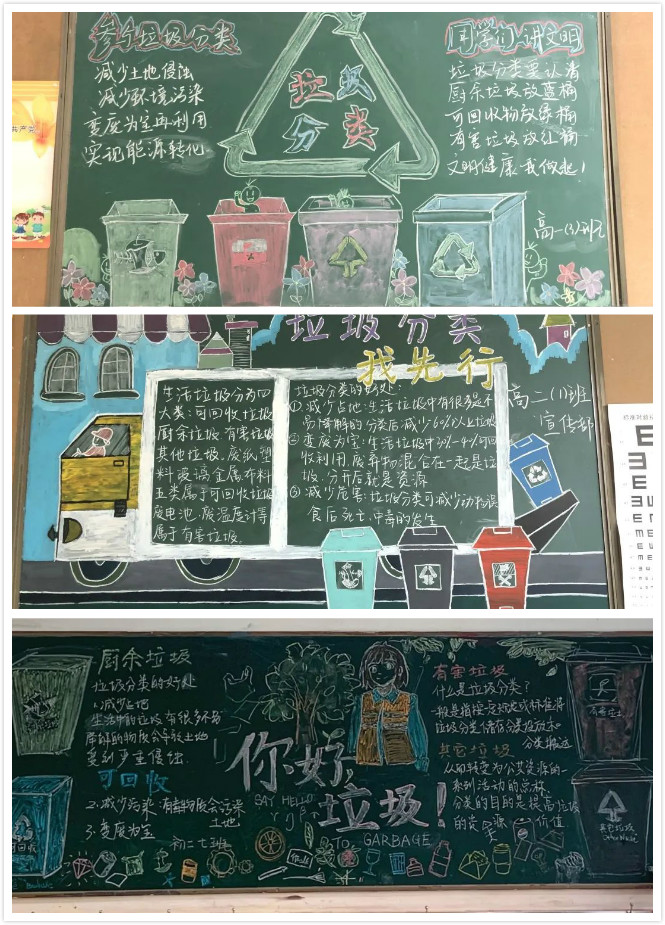 参与垃圾分类
减少土地侵蚀
减少环境污染
变废为宝再利用
实现能源转化
垃圾
分类
同学们讲文明
垃圾分类要认清
厨余垃圾放蓝桶
可回收物放绿桶
有害垃圾放红桶
文明健康我做起!
高一(3)班
垃圾分类
我先行
高二(1)班
宣传部
生活垃圾分为四
大类:可回收垃圾
厨余垃圾 有害垃圾
其他垃圾.废纸塑
料玻璃金属布料
五类属于可回收垃圾
废电池.废温度计等
属于有害垃圾.
垃圾分类的好处:
①减少占地:生活垃圾中有很多是不
易降解的分类后减少60%以上垃圾
②变废为宝:生活垃圾中30%-40%可回
收利用.废弃物混合在一起是垃
圾.分开后就是资源
③减少危害:垃圾分类可减少动物误
食后死亡.中毒的发生
E
厨余垃圾
垃圾分类的好处
1.减少占地
生活中的垃圾有很多不易
降解的物质会导致土地
受到严重侵蚀.
可回收
2.减少污染:有害物质会污染
土地
3.变废为宝
初二七班
你好,
SAY HELLO
垃圾!
TO GARBAGE
有害垃圾
什么是垃圾分类?
一般是指按一定规定或标准将
垃圾分类储存分类投放和
分类搬运
其它垃圾
从而转变为公共资源的一
系列活动的总称.
分类的目的是提高垃圾
的资源价值
其它垃圾